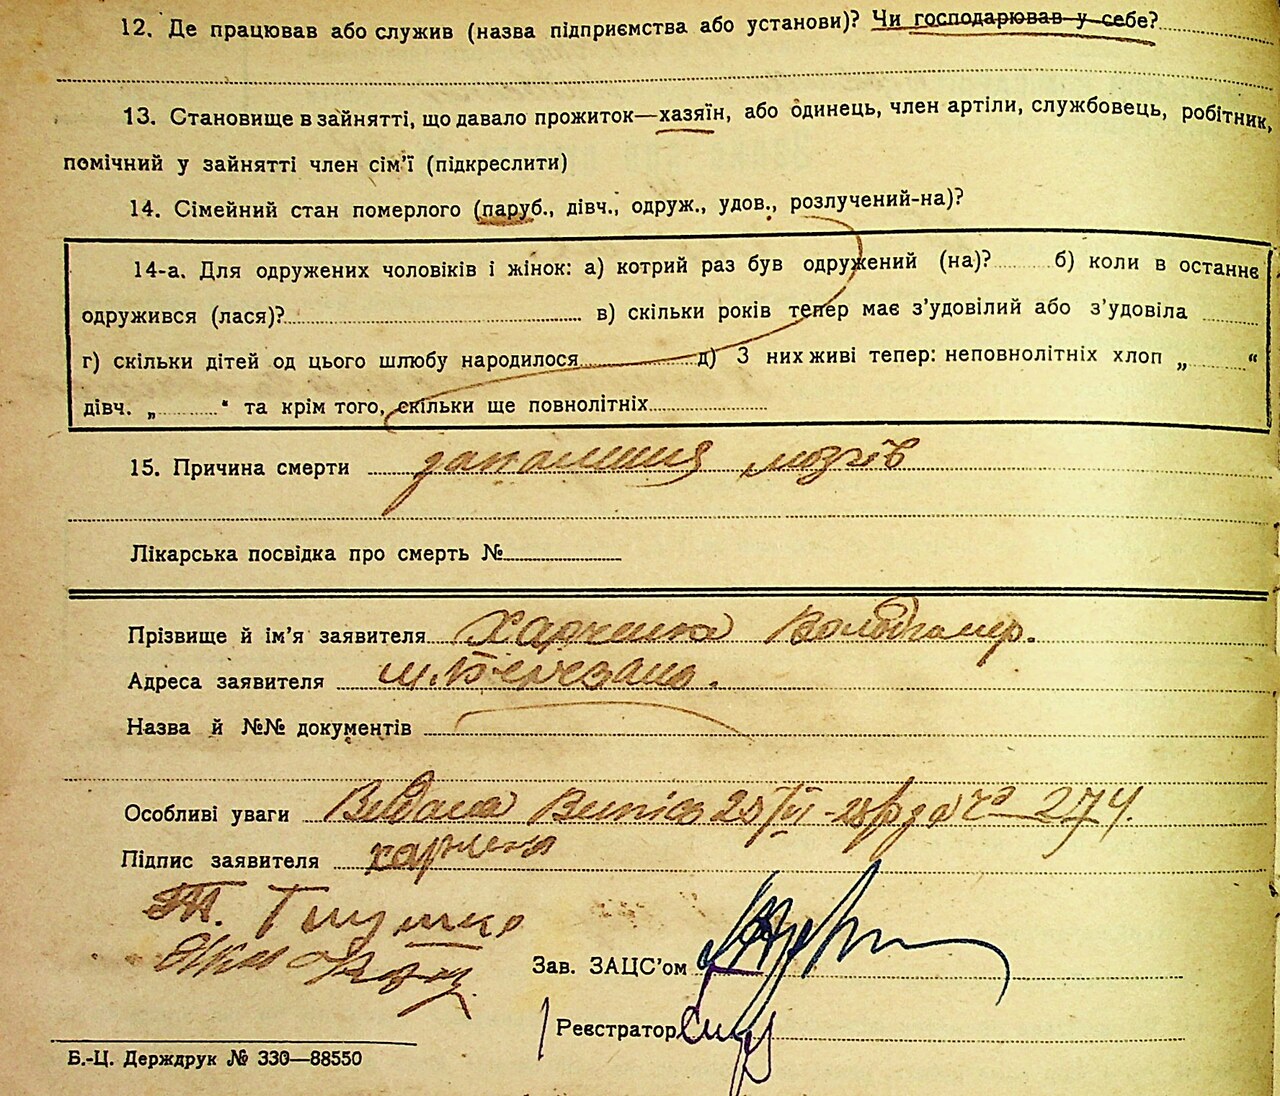 12. Де працював або служив (назва підприємства або установи)? Чи господарював у себе?
13. Становище в зайнятті, що давало прожиток—хазяїн, або одинець, член артіли, службовець, робітник,
помічний у зайнятті член сім’ї (підкреслити)
14. Сімейний стан померлого (паруб., дівч., одруж., удов., розлучений-на)?
14-а. Для одружених чоловіків і жінок: а) котрий раз був одружений (на)? б) коли в останнє
одружився (лася)? в) скільки років тепер має з’удовілий або з’удовіла
г) скільки дітей од цього шлюбу народилося д) З них живі тепер: неповнолітніх хлоп „ “
дівч. „ “ та крім того, скільки ще повнолітніх
15. Причина смерти запалення мозгів
Лікарська посвідка про смерть №
Прізвище й ім’я заявителя Харченко Володимер.
Адреса заявителя м. Березань.
Назва й №№ документів
Особливі уваги Видана 274.
Підпис заявителя Харченко
Зав. ЗАЦС’ом
Реєстратор
Б.-Ц. Держдрук № 330—88550